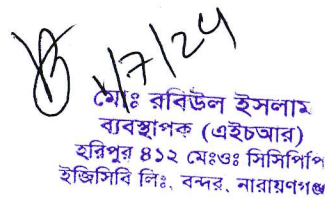 1/7/24
মোঃ রবিউল ইসলাম
ব্যবস্থাপক (এইচআর)
হরিপুর ৪১২ মেঃওঃ সিসিপিপি
ইজিসিবি লিঃ, বন্দর, নারায়ণগঞ্জ